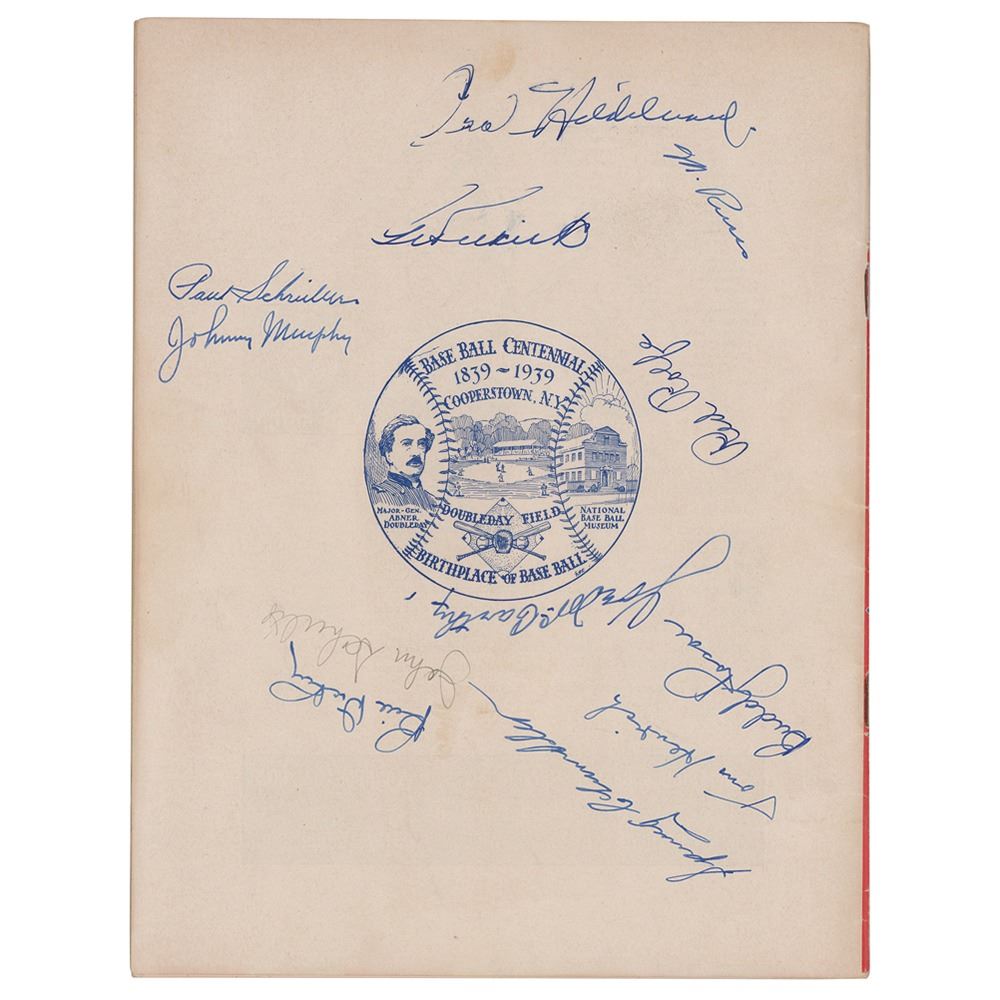 M. Russo
Paul Schreiber
Johnny Murphy
Red Rolfe
BASE BALL CENTENNIAL
1839 ~ 1939
COOPERSTOWN, N.Y.
MAJOR-GEN.
ABNER
DOUBLEDAY
DOUBLEDAY FIELD
NATIONAL
BASE BALL
MUSEUM
BIRTHPLACE OF BASE BALL
Joe McCarthy
Buddy Rosar
John Schulte
Bill Dickey
Tom Henrich
Spurgeon Chandler